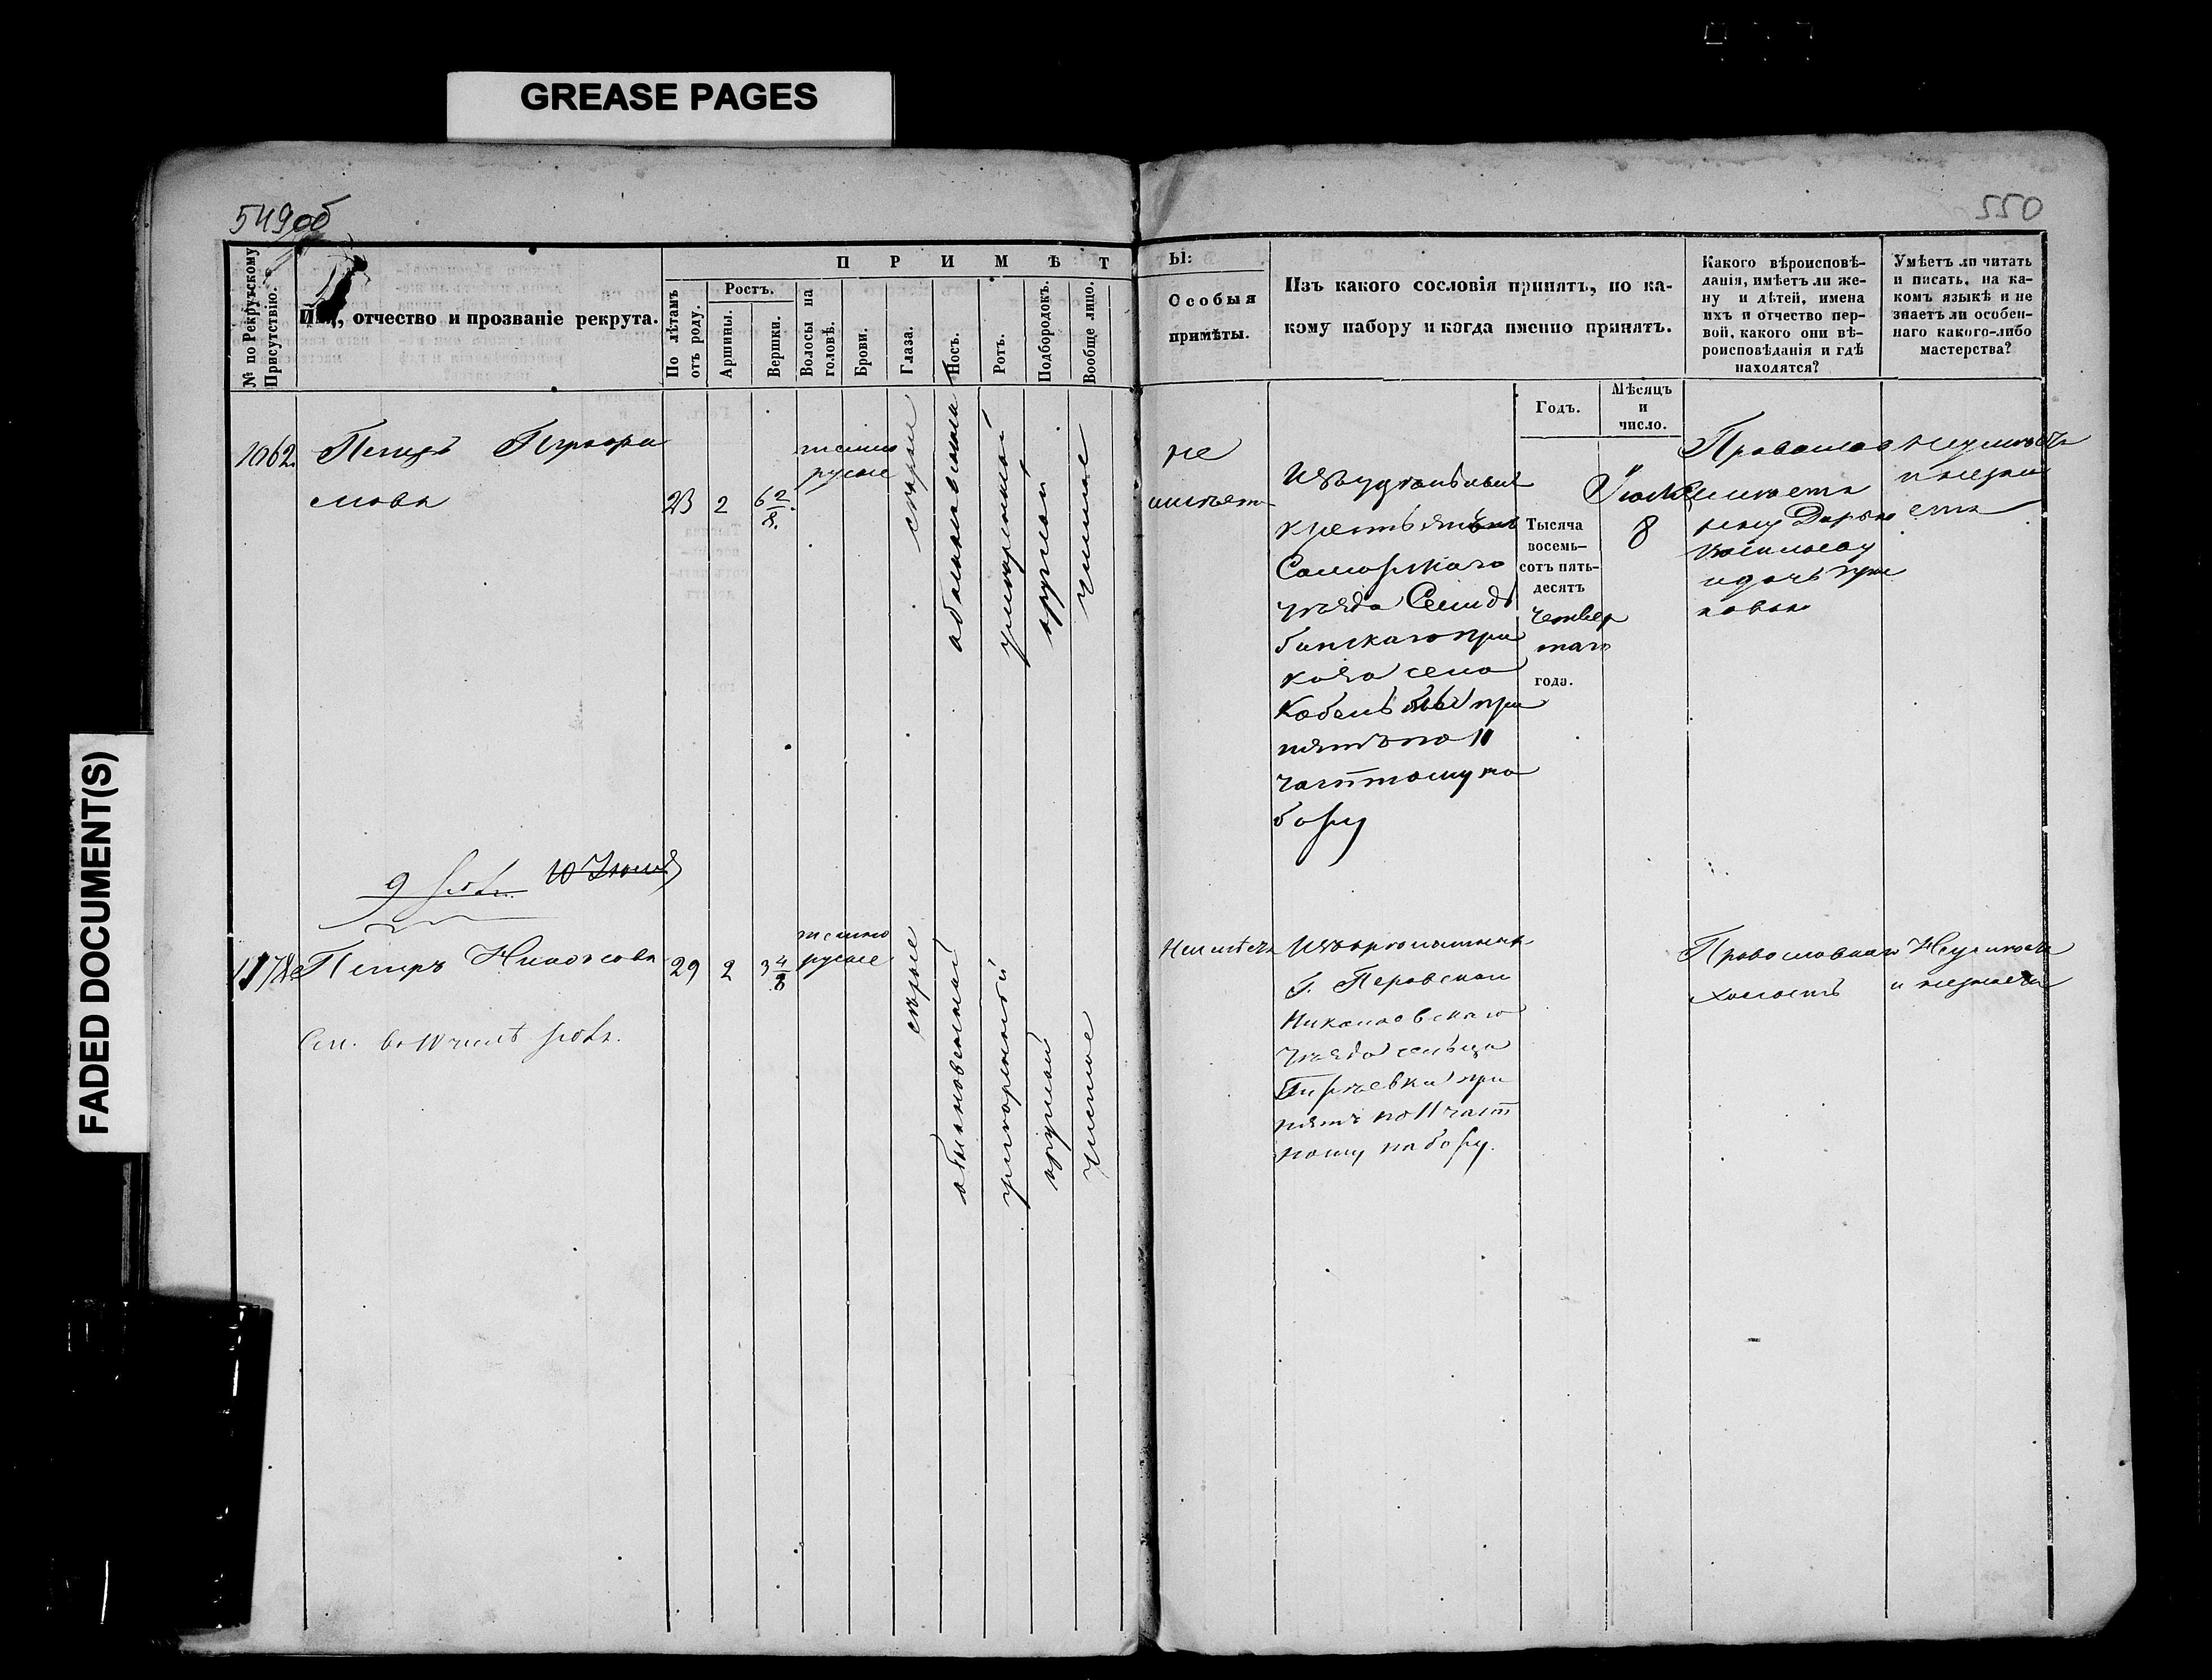 GREASE PAGES
FADED DOCUMENT(S)
549об
550
№ по Рекрутскому Присутствію.
Имя, отчество и прозваніе рекрута.
П Р И М Ѣ Т Ы:
По лѣтамъ отъ роду.
Ростъ.
Аршины.
Вершки.
Волосы на головѣ.
Брови.
Глаза.
Носъ.
Ротъ.
Подбородокъ.
Вообще лицо.
Особыя
примѣты.
Изъ какого сословія принятъ, по ка-
кому набору и когда именно принятъ.
Годъ.
Мѣсяцъ
и
число.
Какого вѣроисповѣ-
данія, имѣетъ ли же-
ну и дѣтей, имена
ихъ и отчество пер-
вой, какого они вѣ-
роисповѣданія и гдѣ
находятся?
Умѣетъ ли читать
и писать, на ка-
комъ языкѣ и не
знаетъ ли особен-
наго какого-либо
мастерства?
1062.
23
2
6 2/8.
темно
русые
сѣрые
обыкновенный
умѣренный
круглый
чистое
не
имѣетъ
Изъ удѣльныхъ
крестьянъ
Самарскаго
уѣзда
при
каза села
при
нятъ по 11
частному на
бору
Тысяча
восемь-
сотъ пять-
десятъ
четвер
таго
года.
8
Православ
имѣетъ
жену Дарью
Васильеву
и дочь
неумѣетъ
и незна
етъ
9
10 Іюня
Петръ
29
2
3 4/8
темно
русые
сѣрые
обыкновенный
умѣренный
круглый
чистое
Неимѣетъ
Г. Перовскаго
Николаевскаго
уѣзда сельца
при
нятъ по 11 част
ному набору.
Православнаго
холостъ
Неумѣетъ
и незнаетъ